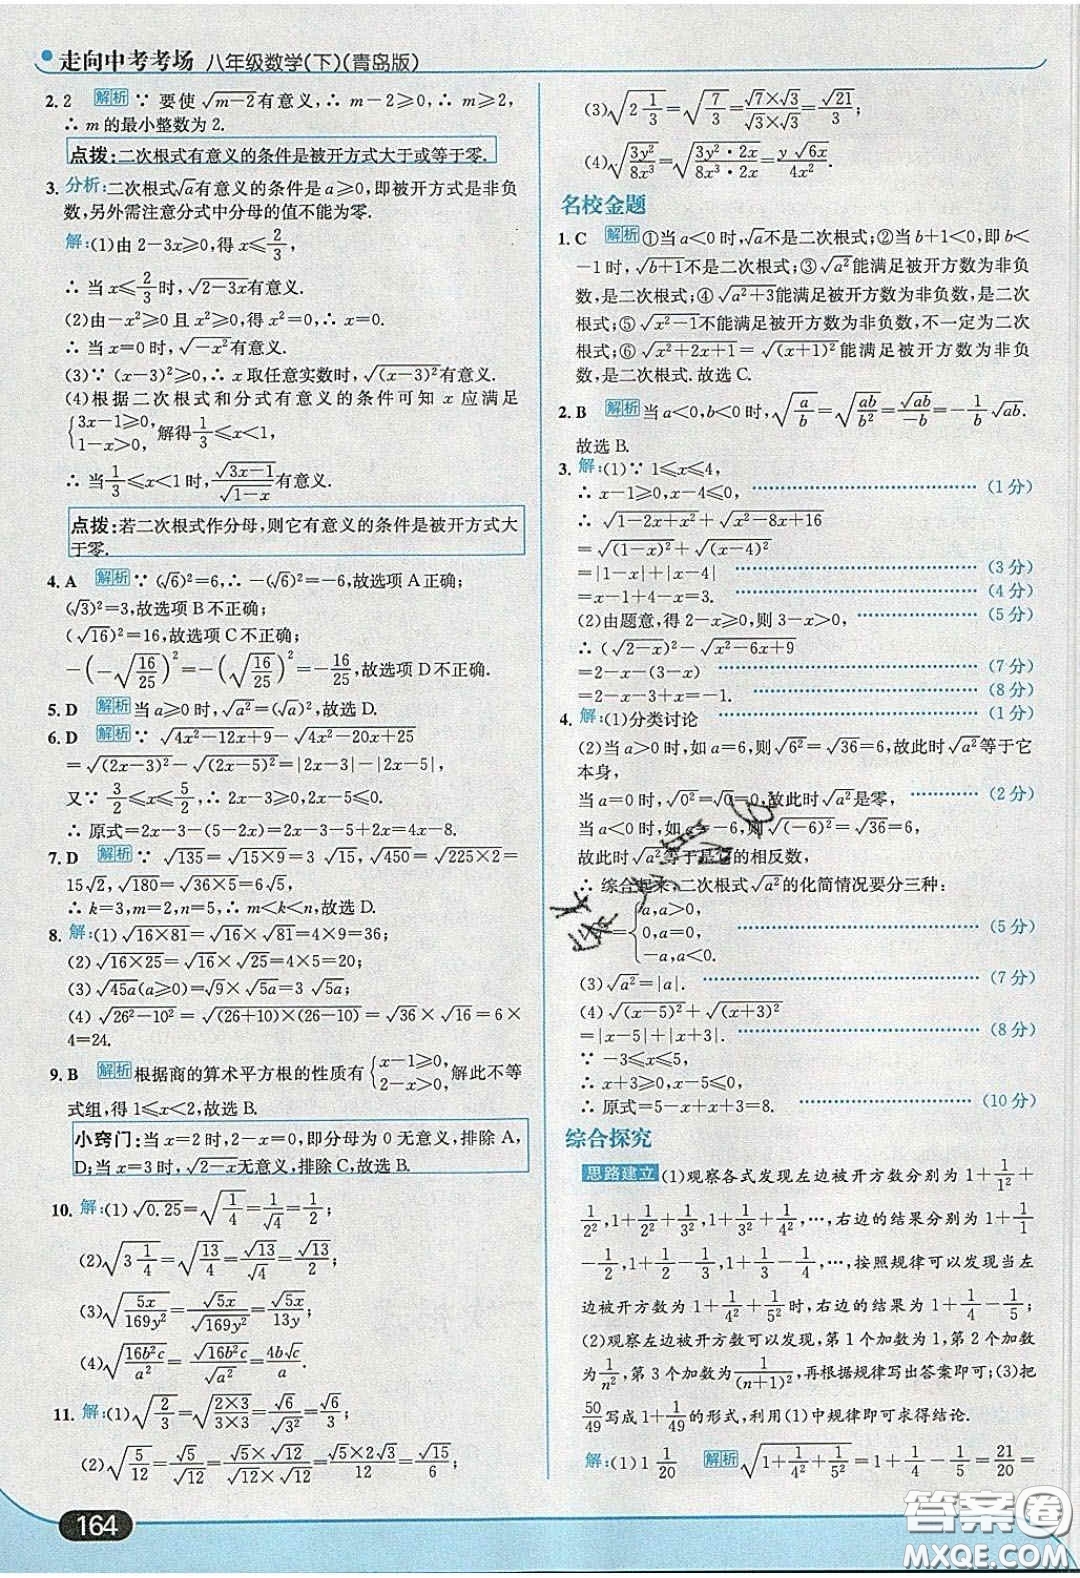 走向中考考场 八年级数学(下)(青岛版)
2. 2 解析 ∵ 要使√(m-2)有意义,∴ m-2≥0,∴ m≥2,
∴ m的最小整数为2.
点拨:二次根式有意义的条件是被开方式大于或等于零.
3. 分析:二次根式√a有意义的条件是a≥0,即被开方式是非负
数,另外需注意分式中分母的值不能为零.
解:(1)由2-3x≥0,得x≤2/3,
∴ 当x≤2/3时,√(2-3x)有意义.
(2)由-x²≥0且x²≥0,得x²=0,∴ x=0.
∴ 当x=0时,√(-x²)有意义.
(3)∵ (x-3)²≥0,∴ x取任意实数时,√((x-3)²)有意义.
(4)根据二次根式和分式有意义的条件可知x应满足
{3x-1≥0, 1-x>0, 解得1/3≤x<1,
∴ 当1/3≤x<1时,√(3x-1)/√(1-x)有意义.
点拨:若二次根式作分母,则它有意义的条件是被开方式大
于零.
4. A 解析 ∵ (√6)²=6,∴ -(√6)²=-6,故选项A正确;
(√3)²=3,故选项B不正确;
(√16)²=16,故选项C不正确;
-(-√(16/25))²=-(√(16/25))²=-16/25,故选项D不正确.
5. D 解析 当a≥0时,√(a²)=(√a)²,故选D.
6. D 解析 ∵ √(4x²-12x+9)-√(4x²-20x+25)
=√((2x-3)²)-√((2x-5)²)=|2x-3|-|2x-5|,
又∵ 3/2≤x≤5/2,∴ 2x-3≥0,2x-5≤0,
∴ 原式=2x-3-(5-2x)=2x-3-5+2x=4x-8.
7. D 解析 ∵ √135=√(15×9)=3 √15,√450=√(225×2)=
15√2,√180=√(36×5)=6√5,
∴ k=3,m=2,n=5,∴ m<k<n,故选D.
8. 解:(1)√(16×81)=√16×√81=4×9=36;
(2)√(16×25)=√16×√25=4×5=20;
(3)√(45a)(a≥0)=√9×√(5a)=3 √(5a);
(4)√(26²-10²)=√((26+10)×(26-10))=√36×√16=6×
4=24.
9. B 解析 根据商的算术平方根的性质有{x-1≥0, 2-x>0, 解此不等
式组,得1≤x<2,故选B.
小窍门:当x=2时,2-x=0,即分母为0无意义,排除A,
D;当x=3时,√(2-x)无意义,排除C,故选B.
10. 解:(1)√0.25=√(1/4)=√1/√4=1/2;
(2)√(3 1/4)=√(13/4)=√13/√4=√13/2;
(3)√(5x/169y²)=√(5x)/√(169y²)=√(5x)/13y;
(4)√(16b²c/a²)=√(16b²c)/√(a²)=4b√c/a.
11. 解:(1)√(2/3)=√((2×3)/(3×3))=√6/√(3²)=√6/3;
(2)√(5/12)=(√5×√12)/(√12×√12)=(√5×2√3)/12=√15/6;
(3)√(2 1/3)=√(7/3)=(√7×√3)/(√3×√3)=√21/3;
(4)√(3y²/8x³)=√((3y²·2x)/(8x³·2x))=y √(6x)/4x².
名校金题
1. C 解析 ①当a<0时,√a不是二次根式;②当b+1<0,即b<
-1时,√(b+1)不是二次根式;③√(a²)能满足被开方数为非负
数,是二次根式;④√(a²+3)能满足被开方数为非负数,是二次
根式;⑤√(x²-1)不能满足被开方数为非负数,不一定为二次根
式;⑥√(x²+2x+1)=√((x+1)²)能满足被开方数为非负数,
是二次根式.故选C.
2. B 解析 当a<0,b<0时,√(a/b)=√(ab/b²)=√(ab)/(-b)=-1/b √(ab).
故选B.
3. 解:(1)∵ 1≤x≤4,
∴ x-1≥0,x-4≤0, (1分)
∴ √(1-2x+x²)+√(x²-8x+16)
=√((1-x)²)+√((x-4)²)
=|1-x|+|x-4| (3分)
=x-1+4-x=3. (4分)
(2)由题意,得2-x≥0,则3-x>0, (5分)
∴ (√(2-x))²-√(x²-6x+9)
=2-x-(3-x) (7分)
=2-x-3+x=-1. (8分)
4. 解:(1)分类讨论 (1分)
(2)当a>0时,如a=6,则√(6²)=√36=6,故此时√(a²)等于它
本身,
当a=0时,√(0²)=√0=0,故此时√(a²)是零, (2分)
当a<0时,如a=-6,则√((-6)²)=√36=6,
故此时√(a²)等于是它的相反数,
∴ 综合起来,二次根式√(a²)的化简情况要分三种:
={a,a>0, 0,a=0, -a,a<0. (5分)
(3)√(a²)=|a|. (7分)
(4)√((x-5)²)+√((x+3)²)
=|x-5|+|x+3|. (8分)
∵ -3≤x≤5,
∴ x+3≥0,x-5≤0,
∴ 原式=5-x+x+3=8. (10分)
综合探究
思路建立 (1)观察各式发现左边被开方数分别为1+1/1²+
1/2²,1+1/2²+1/3²,1+1/3²+1/4²,…,右边的结果分别为1+1/1
-1/2,1+1/2-1/3,1+1/3-1/4,…,按照规律可以发现当左
边被开方数为1+1/4²+1/5²时,右边的结果为1+1/4-1/5;
(2)观察左边被开方数可以发现,第1个加数为1,第2个加数
为1/n²,第3个加数为1/(n+1)²,再根据规律写出答案即可;(3)把
50/49写成1+1/49的形式,利用(1)中规律即可求得结论.
解:(1)1 1/20 解析 √(1+1/4²+1/5²)=1+1/4-1/5=21/20=
164
答案圈
MXQE.COM